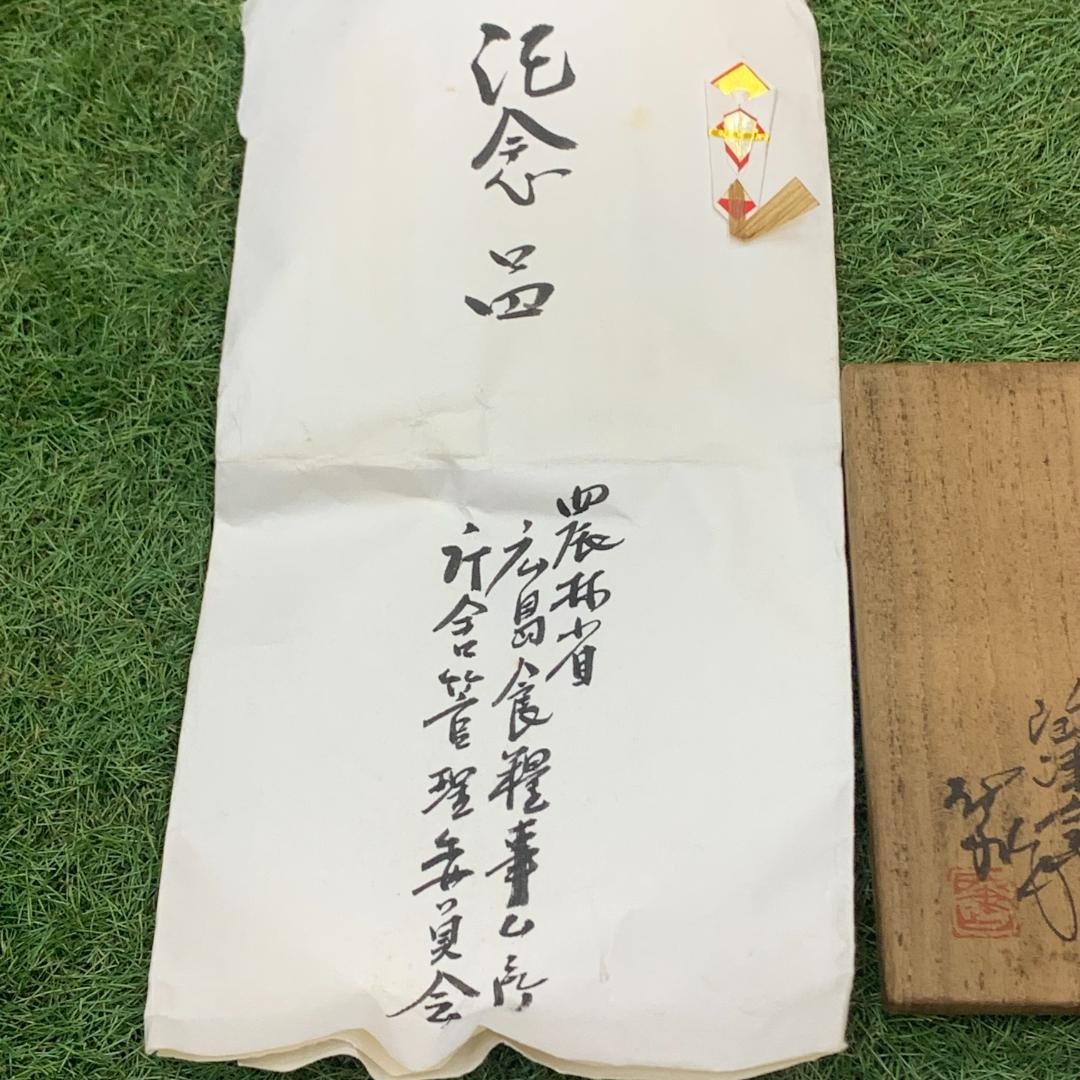 記念品
農林省
広島食糧事務所
庁舎管理委員会